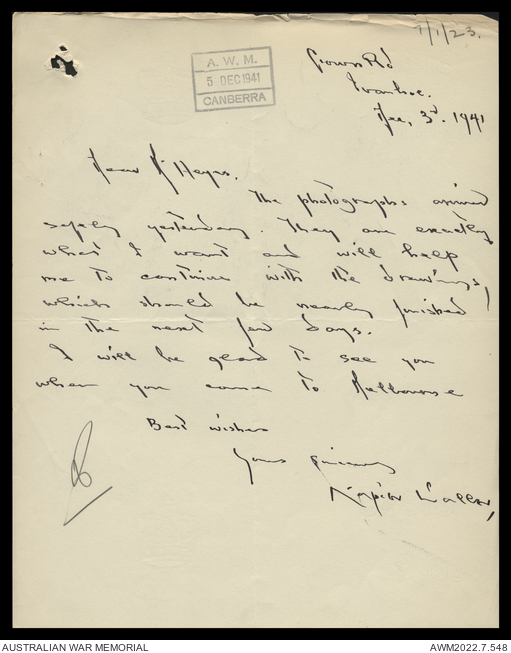 7/1/23.
A.W.M.
5 DEC 1941
CANBERRA
Crown Rd
Ivanhoe.
Dec, 3rd. 1941
Dear Mr Heyes.
The photographs arrived
safely yesterday. They are exactly
what I want and will help
me to continue with the drawings,
which should be nearly finished
in the next few days.
I will be glad to see you
when you come to Melbourne
Best wishes
Yours sincerely
Napier Waller,
AUSTRALIAN WAR MEMORIAL
AWM2022.7.548